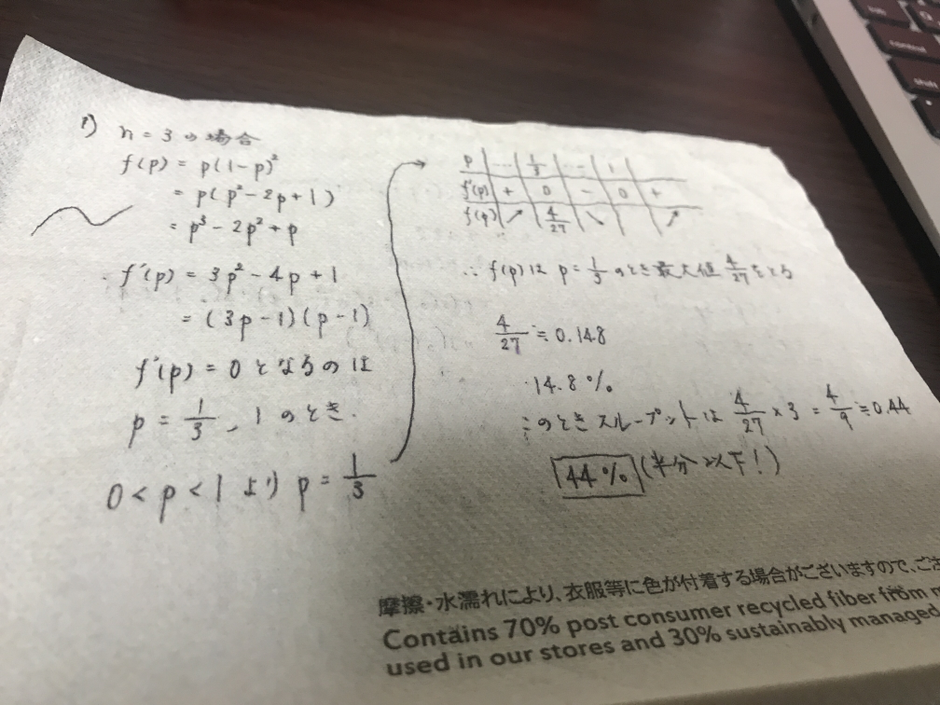 1) n=3の場合
f(p) = p(1-p)²
= p(p²-2p+1)
= p³-2p²+p
f'(p) = 3p²-4p+1
= (3p-1)(p-1)
f'(p)=0となるのは
p = 1/3, 1のとき.
0<p<1より p = 1/3
p | … | 1/3 | … | 1 |
f'(p) | + | 0 | - | 0 | +
f(p) | ↗ | 4/27 | ↘ | | ↗
∴ f(p)は p=1/3のとき最大値 4/27をとる
4/27 ≒ 0.148
14.8%
このときスループットは 4/27 × 3 = 4/9 ≒ 0.44
44% (半分以下!)
摩擦・水濡れにより、衣服等に色が付着する場合がございますので、ご
Contains 70% post consumer recycled fiber from
used in our stores and 30% sustainably managed
control
shift